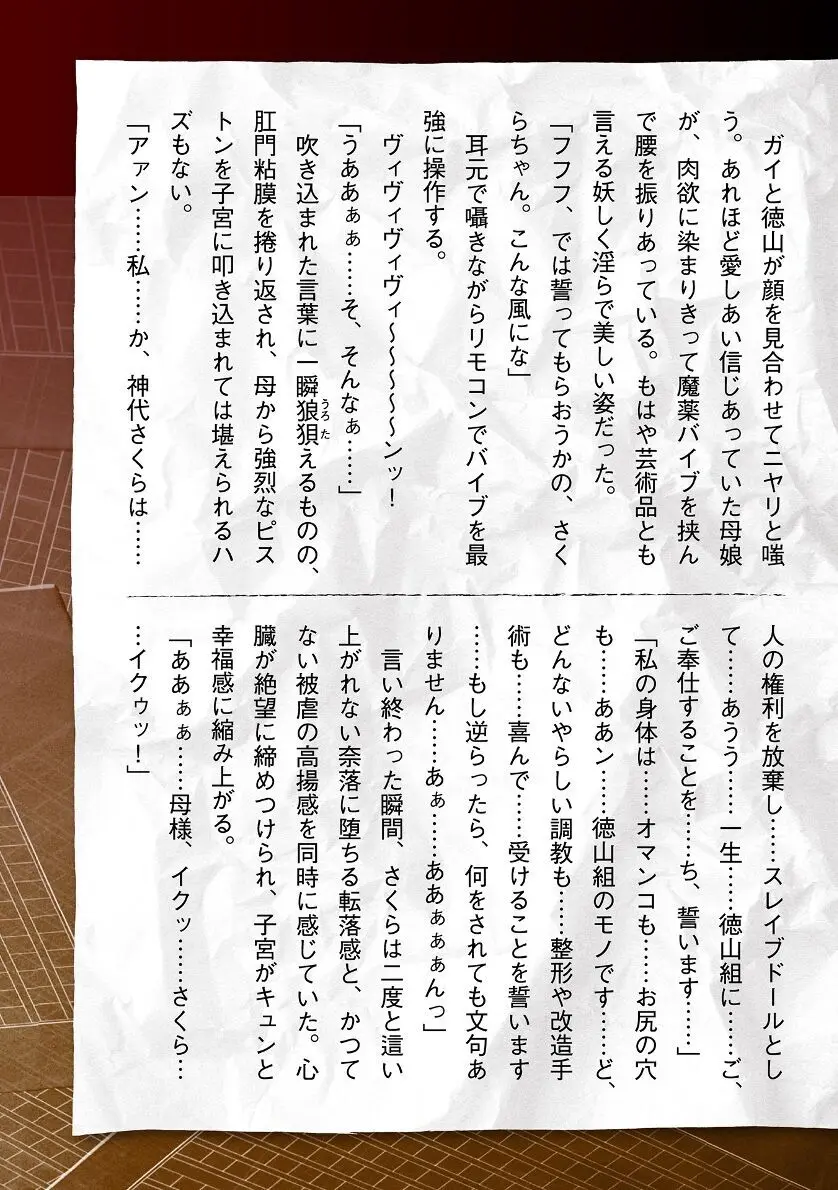 ガイと徳山が顔を見合わせてニヤリと嗤
う。あれほど愛しあい信じあっていた母娘
が、肉欲に染まりきって魔薬バイブを挟ん
で腰を振りあっている。もはや芸術品とも
言える妖しく淫らで美しい姿だった。
「フフフ、では誓ってもらおうかの、さく
らちゃん。こんな風にな」
耳元で囁きながらリモコンでバイブを最
強に操作する。
ヴィヴィヴィヴィ～～～～～ンッ！
「うああぁぁ……そ、そんなぁ……」
吹き込まれた言葉に一瞬狼狽えるものの、
うろた
肛門粘膜を捲り返され、母から強烈なピス
トンを子宮に叩き込まれては堪えられるハ
ズもない。
「アァン……私……か、神代さくらは……
人の権利を放棄し……スレイブドールとし
て……あうう……一生……徳山組に……ご、
ご奉仕することを……ち、誓います……」
「私の身体は……オマンコも……お尻の穴
も……ああン……徳山組のモノです……ど、
どんないやらしい調教も……整形や改造手
術も……喜んで……受けることを誓います
……もし逆らったら、何をされても文句あ
りません……あぁ……ああぁぁぁんっ」
言い終わった瞬間、さくらは二度と這い
上がれない奈落に堕ちる転落感と、かつて
ない被虐の高揚感を同時に感じていた。心
臓が絶望に締めつけられ、子宮がキュンと
幸福感に縮み上がる。
「ああぁぁ……母様、イクッ……さくら…
…イクゥッ！」